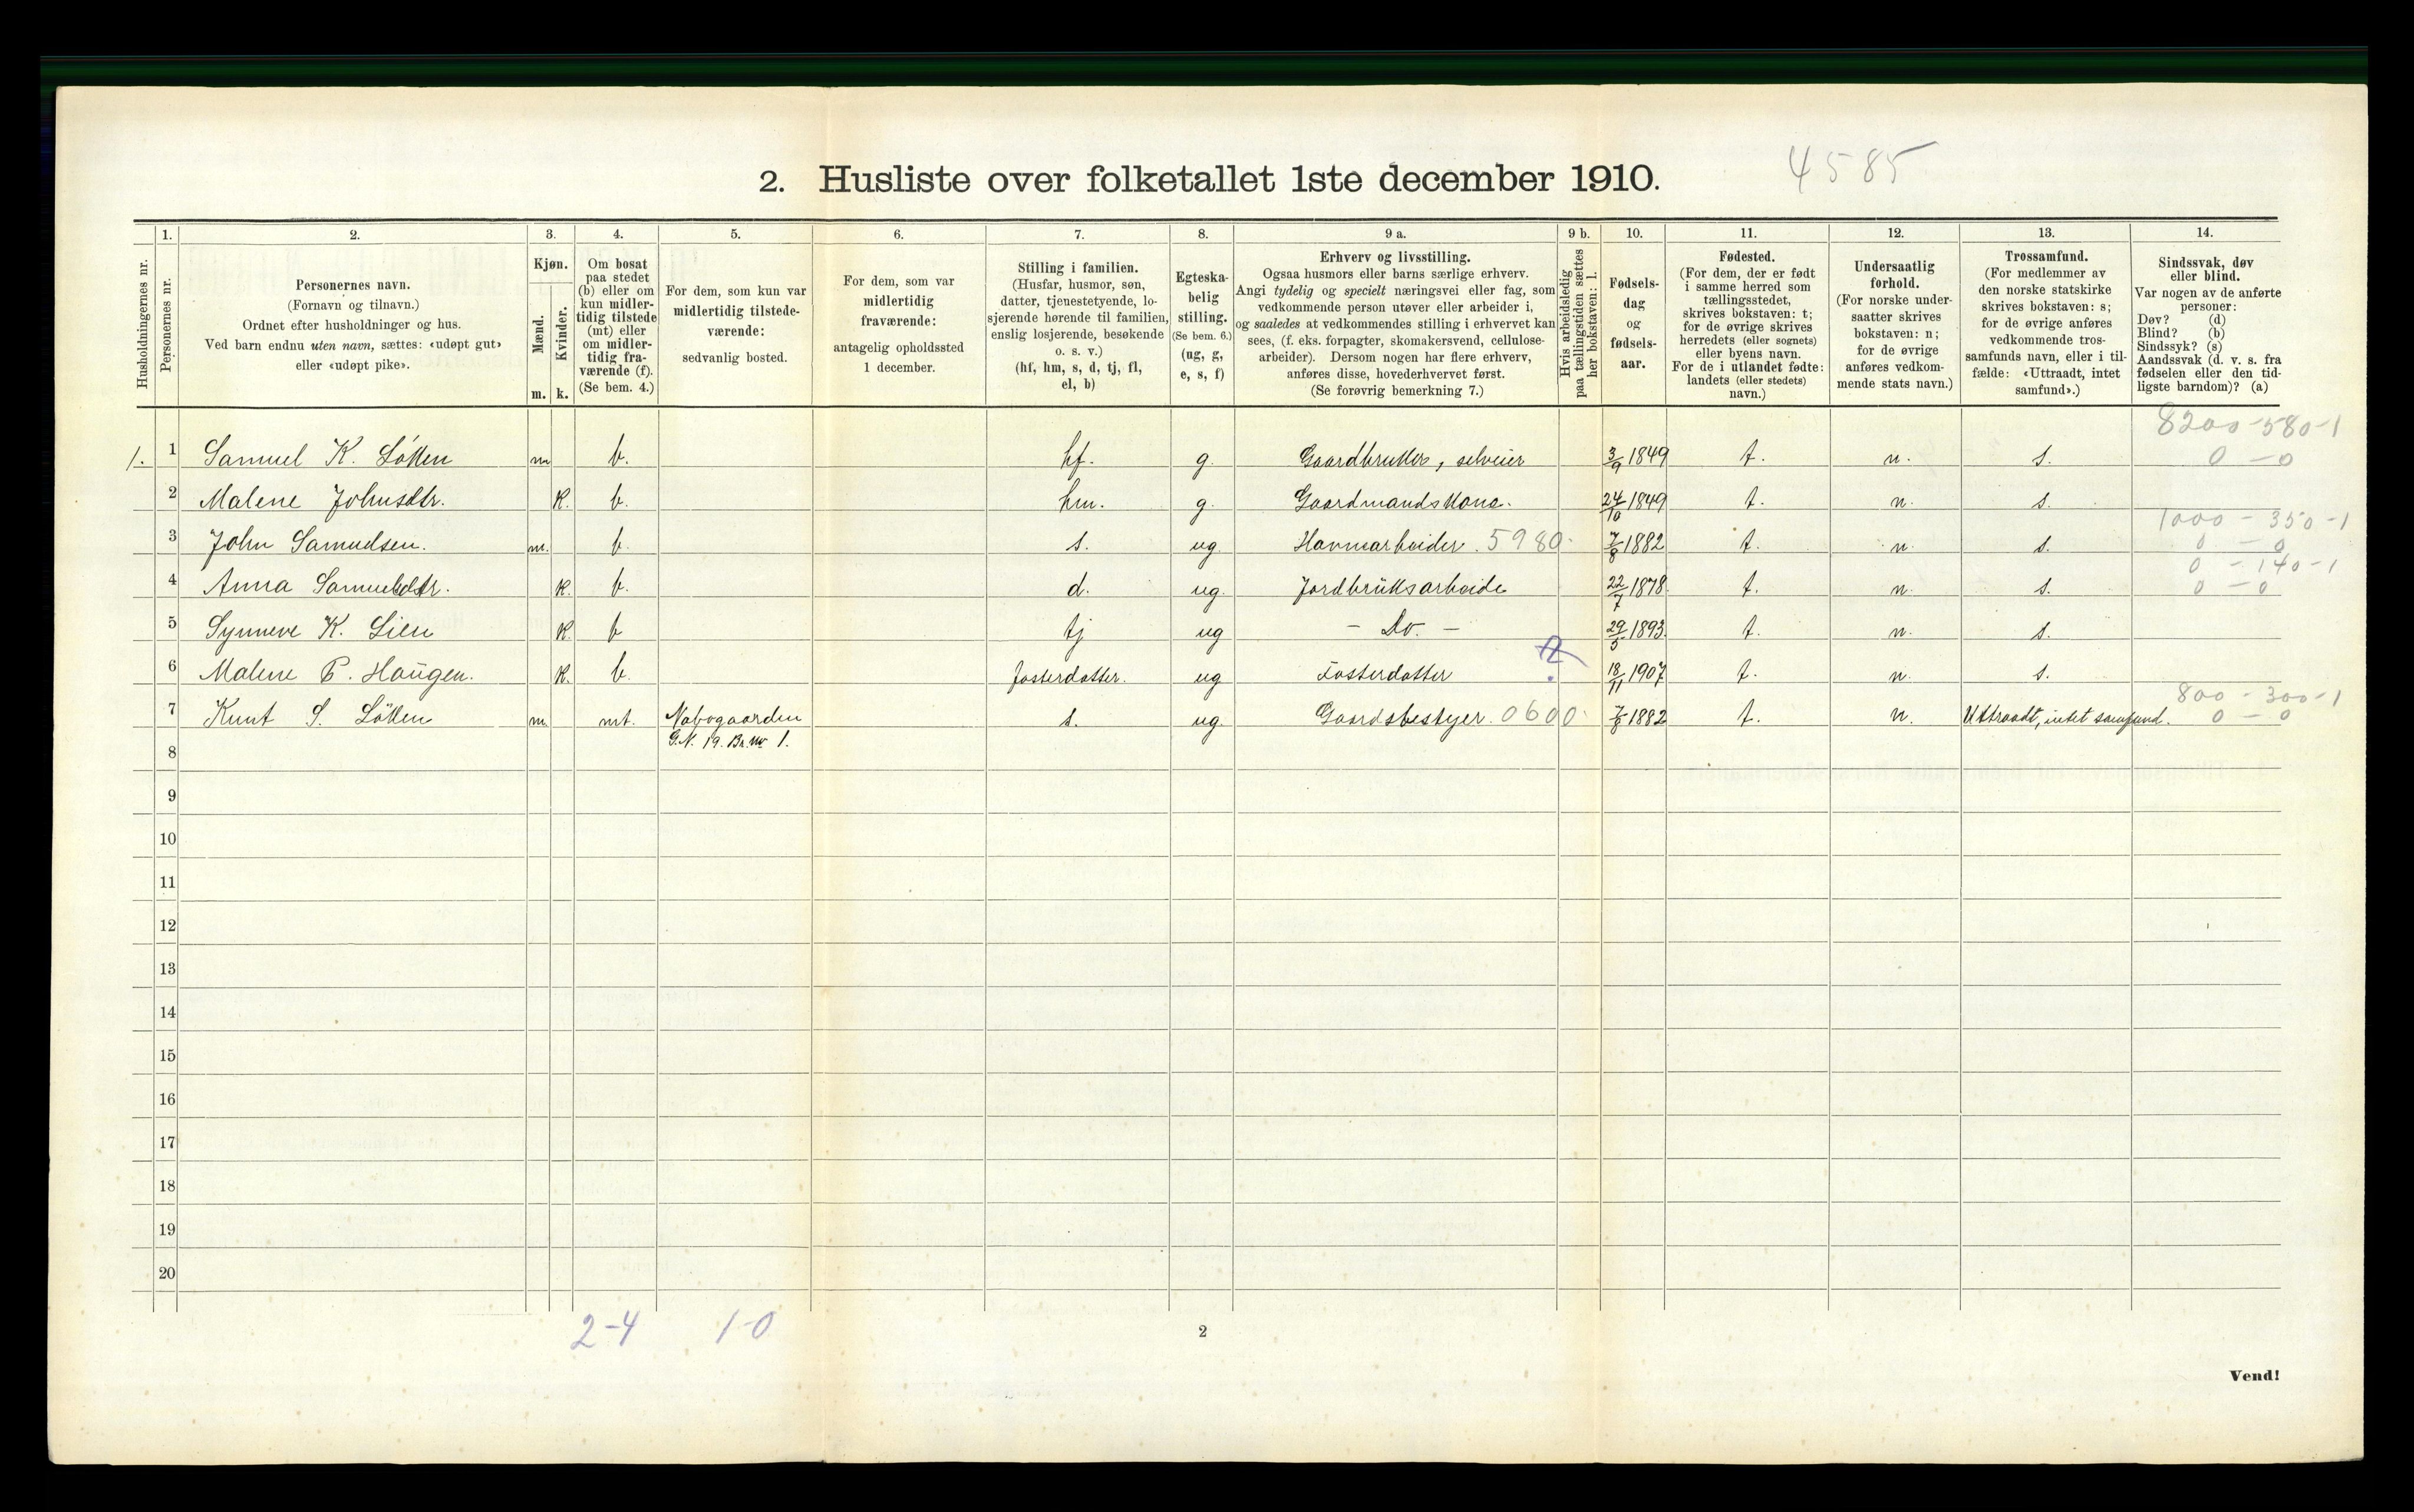 2. Husliste over folketallet 1ste december 1910. 4585
1. 2. 3. 4. 5. 6. 7. 8. 9 a. 9 b. 10. 11. 12. 13. 14.
Husholdningernes nr.
Personernes nr.
Personernes navn.
(Fornavn og tilnavn.)
Ordnet efter husholdninger og hus.
Ved barn endnu uten navn, sættes: «udøpt gut»
eller «udøpt pike».
Kjøn.
Mænd.
Kvinder.
m. k.
Om bosat
paa stedet
(b) eller om
kun midler-
tidig tilstede
(mt) eller
om midler-
tidig fra-
værende (f).
(Se bem. 4.)
For dem, som kun var
midlertidig tilstede-
værende:
sedvanlig bosted.
For dem, som var
midlertidig
fraværende:
antagelig opholdssted
1 december.
Stilling i familien.
(Husfar, husmor, søn,
datter, tjenestetyende, lo-
sjerende hørende til familien,
enslig losjerende, besøkende
o. s. v.)
(hf, hm, s, d, tj, fl,
el, b)
Egteska-
belig
stilling.
(Se bem. 6.)
(ug, g,
e, s, f)
Erhverv og livsstilling.
Ogsaa husmors eller barns særlige erhverv.
Angi tydelig og specielt næringsvei eller fag, som
vedkommende person utøver eller arbeider i,
og saaledes at vedkommendes stilling i erhvervet kan
sees, (f. eks. forpagter, skomakersvend, cellulose-
arbeider). Dersom nogen har flere erhverv,
anføres disse, hovederhvervet først.
(Se forøvrig bemerkning 7.)
Hvis arbeidsledig
paa tællingstiden sættes
her bokstaven: l.
Fødsels-
dag
og
fødsels-
aar.
Fødested.
(For dem, der er født
i samme herred som
tællingsstedet,
skrives bokstaven: t;
for de øvrige skrives
herredets (eller sognets)
eller byens navn.
For de i utlandet fødte:
landets (eller stedets)
navn.)
Undersaatlig
forhold.
(For norske under-
saatter skrives
bokstaven: n;
for de øvrige
anføres vedkom-
mende stats navn.)
Trossamfund.
(For medlemmer av
den norske statskirke
skrives bokstaven: s;
for de øvrige anføres
vedkommende tros-
samfunds navn, eller i til-
fælde: «Uttraadt, intet
samfund».)
Sindssvak, døv
eller blind.
Var nogen av de anførte
personer:
Døv? (d)
Blind? (b)
Sindssyk? (s)
Aandssvak (d. v. s. fra
fødselen eller den tid-
ligste barndom)? (a)
8200-580-1
1. 1 Samuel K. Løkken m b. hf. g. Gaardbruker, selveier 3/9 1849 t. n. s. 0 - 0
2 Malene Johnsdtr. k. b. hm. g. Gaardmandskona. 24/10 1849 t. n. s.
1000 - 350-1
3 John Samuelsen. m. b. s. ug. Havnearbeider. 5980 7/8 1882 t. n. s. 0 - 0
0 - 140-1
4 Anna Samuelsdtr. k. b. d. ug. Jordbruksarbeide 22/7 1878. t. n. s. 0 - 0
5 Synneve K. Lien k. b tj ug - Do. - 29/5 1893. t. n. s.
6 Malene P. Haugen. k. b. fosterdatter. ug Fosterdatter ? 18/11 1907 t. n. s.
800 - 300-1
7 Knut S. Løkken m. mt. Nabogaarden s. ug. Gaardsbestyer. 0600 7/8 1882 t. n. Uttraadt, intet samfund. 0 - 0
G.N. 19. Br. nr 1.
8
9
10
11
12
13
14
15
16
17
18
19
20
2-4 1-0
2
Vend!